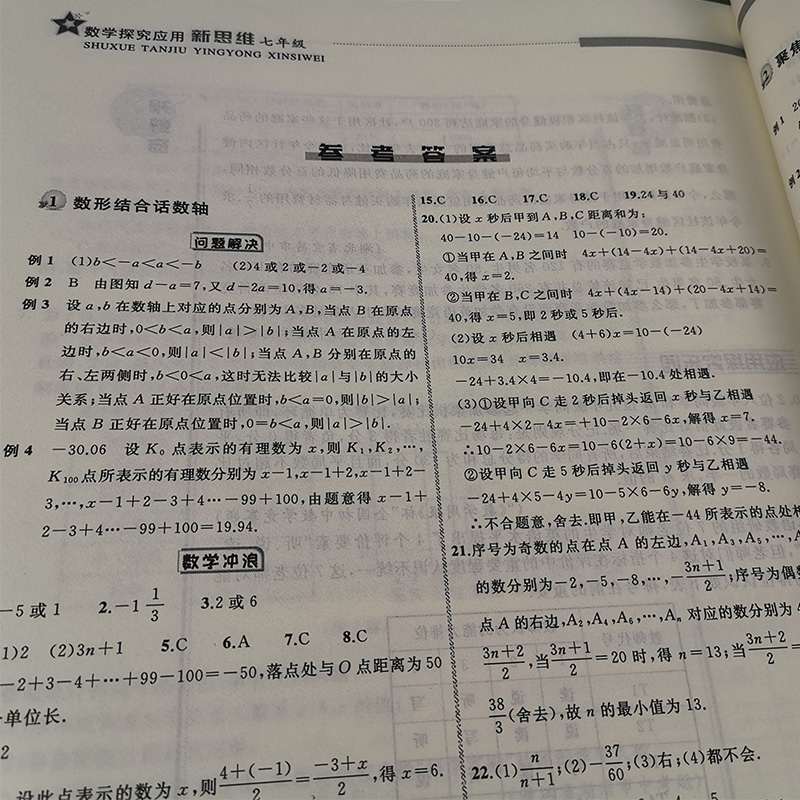 数学探究应用 新思维 七年级
SHUXUE TANJIU YINGYONG XINSIWEI
参考答案
1 数形结合话数轴
问题解决
例1 (1)b<-a<a<-b (2)4或2或-2或-4
例2 B 由图知d-a=7,又d-2a=10,得a=-3.
例3 设a,b在数轴上对应的点分别为A,B,当点B在原点
的右边时,0<b<a,则|a|>|b|;当点A在原点的左
边时,b<a<0,则|a|<|b|;当点A,B分别在原点的
右、左两侧时,b<0<a,这时无法比较|a|与|b|的大小
关系;当点A正好在原点位置时,b<a=0,则|b|>|a|;
当点B正好在原点位置时,0=b<a,则|a|>|b|.
例4 -30.06 设K₀点表示的有理数为x,则K₁,K₂,…,
K₁₀₀点所表示的有理数分别为x-1,x-1+2,x-1+2-
3,…,x-1+2-3+4…-99+100,由题意得x-1+
2-3+4…-99+100=19.94.
数学冲浪
-5或1 2.-1 1/3 3.2或6
1)2 (2)3n+1 5.C 6.A 7.C 8.C
-2+3-4+…+99-100=-50,落点处与O点距离为50
单位长.
2
设此点表示的数为x,则4+(-1)/2=-3+x/2,得x=6.
15.C 16.C 17.C 18.C 19.24与40
20.(1)设x秒后甲到A,B,C距离和为:
40-10-(-24)=14 10-(-10)=20.
①当甲在A,B之间时 4x+(14-4x)+(14-4x+20)=
40,得x=2.
②当甲在B,C之间时 4x+(4x-14)+(20-4x+14)=
40,得x=5,即2秒或5秒后.
(2)设x秒后相遇 (4+6)x=10-(-24)
10x=34 x=3.4.
-24+3.4×4=-10.4,即在-10.4处相遇.
(3)①设甲向C走2秒后掉头返回x秒与乙相遇
-24+4×2-4x=+10-2×6-6x,解得x=7.
∴10-2×6-6x=10-6(2+x)=10-6×9=-44.
②设甲向C走5秒后掉头返回y秒与乙相遇
-24+4×5-4y=10-5×6-6y,解得y=-8.
∴不合题意,舍去.即甲,乙能在-44所表示的点处相
21.序号为奇数的点在点A的左边,A₁,A₃,A₅,…,A
的数分别为-2,-5,-8,…,-3n+1/2;序号为偶数
点A的右边,A₂,A₄,A₆,…,Aₙ对应的数分别为4
3n+2/2,当3n+1/2=20时,得n=13;当3n+2/2=
38/3(舍去),故n的最小值为13.
22.(1)n/n+1;(2)-37/60;(3)右;(4)都不会.
2 聚焦
例1
例2